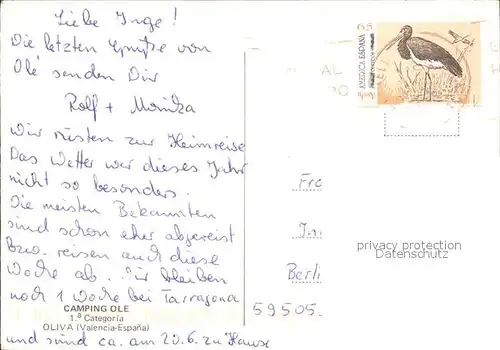 Liebe Inge!
Die letzten Grüße von
Olé senden Dir
Rolf + Monika
Wir rüsten zur Heimreise
Das Wetter war dieses Jahr
nicht so besonders.
Die meisten Bekannten
sind schon eher abgereist
bzw. reisen auch diese
Woche ab. Wir bleiben
noch 1 Woche bei Tarragona
und sind ca. am 20.6. zu Hause
CAMPING OLE
1.ª Categoría
OLIVA (Valencia-España)
AMERICA ESPAÑA
Fr
In
Berli
privacy protection
59505.